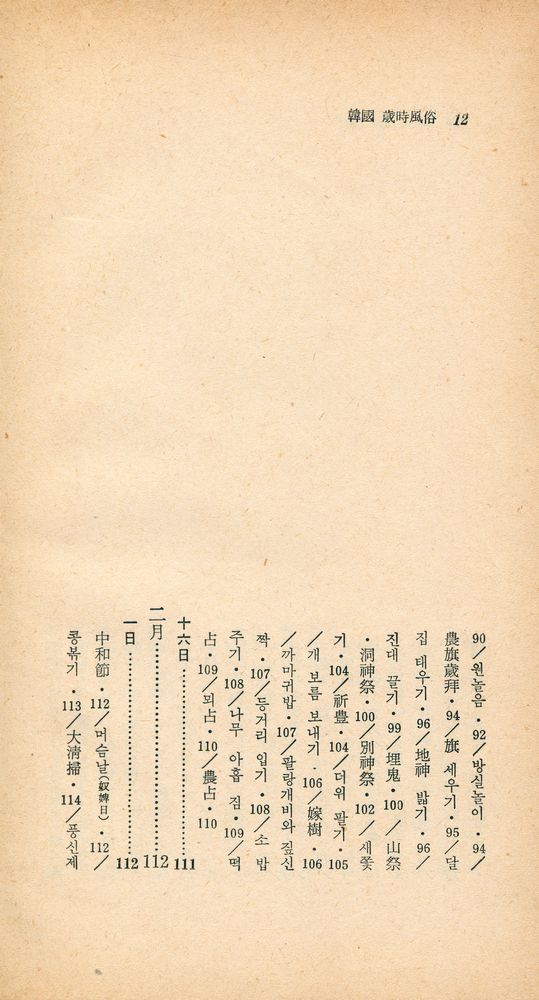 韓國 歲時風俗 12
90／윈놀음・92／방실놀이・94／
農旗歲拜・94／旗 세우기・95／달
집 태우기・96／地神 밟기・96／
진대 끌기・99／埋鬼・100／山祭
・洞神祭・100／別神祭・102／새쫓
기・104／祈豊・104／더위 팔기・105
／개 보름 보내기・106／嫁樹・106
／까마귀밥・107／팔랑개비와 짚신
짝・107／등거리 입기・108／소 밥
주기・108／나무 아홉 짐・109／떡
占・109／푀占・110／農占・110
十六日……………………111
二月……………………112
一日……………………112
中和節・112／머슴날(奴婢日)・112／
콩볶기・113／大淸掃・114／풍신제